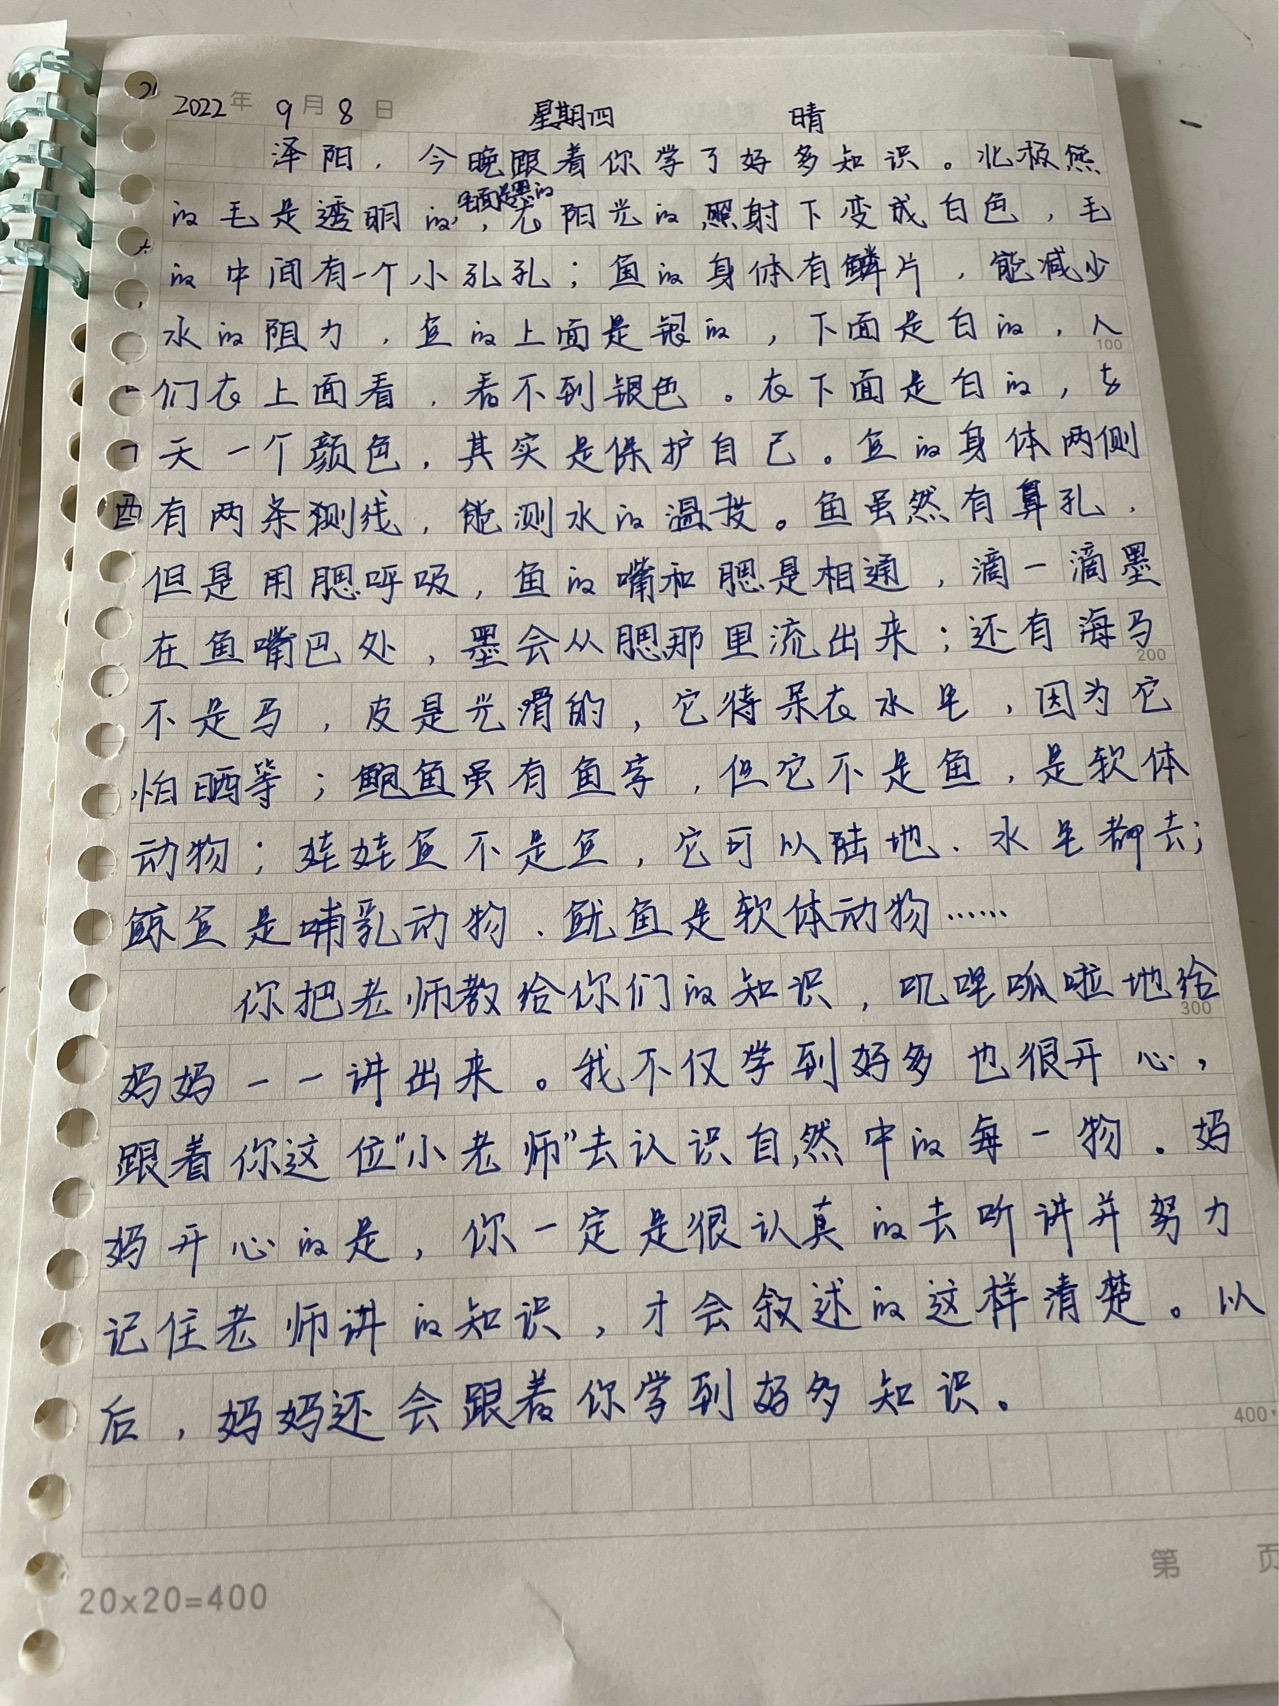 2022年 9月8日 星期四 晴
泽阳，今晚跟着你学了好多知识。北极熊
的毛是透明的，在阳光的照射下变成白色，毛
的中间有一个小孔孔；鱼的身体有鳞片，能减少
水的阻力，鱼的上面是银的，下面是白的，人
100
们在上面看，看不到银色。在下面是白的，与
天一个颜色，其实是保护自己。鱼的身体两侧
有两条测线，能测水的温度。鱼虽然有鼻孔，
但是用腮呼吸，鱼的嘴和腮是相通，滴一滴墨
在鱼嘴巴处，墨会从腮那里流出来；还有海马
200
不是马，皮是光滑的，它待呆在水里，因为它
怕晒等；鲍鱼虽有鱼字，但它不是鱼，是软体
动物；娃娃鱼不是鱼，它可以陆地、水里都去；
鲸鱼是哺乳动物、鱿鱼是软体动物……
你把老师教给你们的知识，叽哩呱啦地给
300
妈妈一一讲出来。我不仅学到好多也很开心，
跟着你这位“小老师”去认识自然中的每一物。妈
妈开心的是，你一定是很认真的去听讲并努力
记住老师讲的知识，才会叙述的这样清楚。以
后，妈妈还会跟着你学到好多知识。
400
第 页
20×20=400